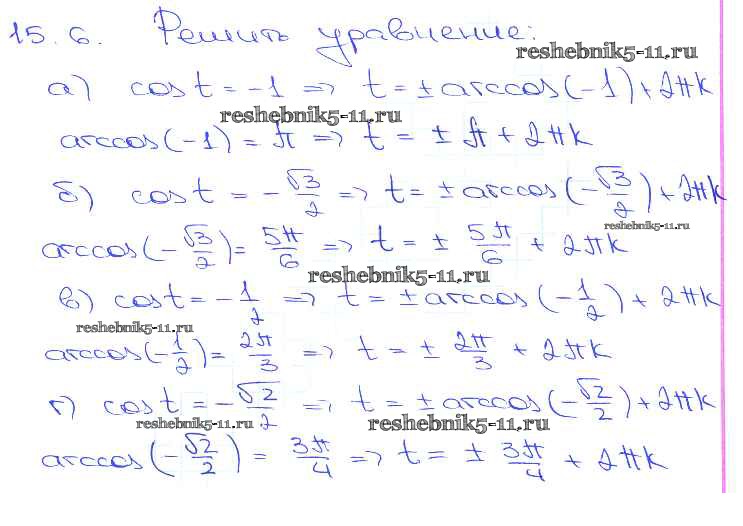 15.6. Решить уравнение:
reshebnik5-11.ru
а) cos t = -1 => t = ± arccos(-1) + 2πk
reshebnik5-11.ru
arccos(-1) = π => t = ± π + 2πk
б) cos t = -√3/2 => t = ± arccos(-√3/2) + 2πk
reshebnik5-11.ru
arccos(-√3/2) = 5π/6 => t = ± 5π/6 + 2πk
reshebnik5-11.ru
в) cos t = -1/2 => t = ± arccos(-1/2) + 2πk
reshebnik5-11.ru
arccos(-1/2) = 2π/3 => t = ± 2π/3 + 2πk
г) cos t = -√2/2 => t = ± arccos(-√2/2) + 2πk
reshebnik5-11.ru reshebnik5-11.ru
arccos(-√2/2) = 3π/4 => t = ± 3π/4 + 2πk